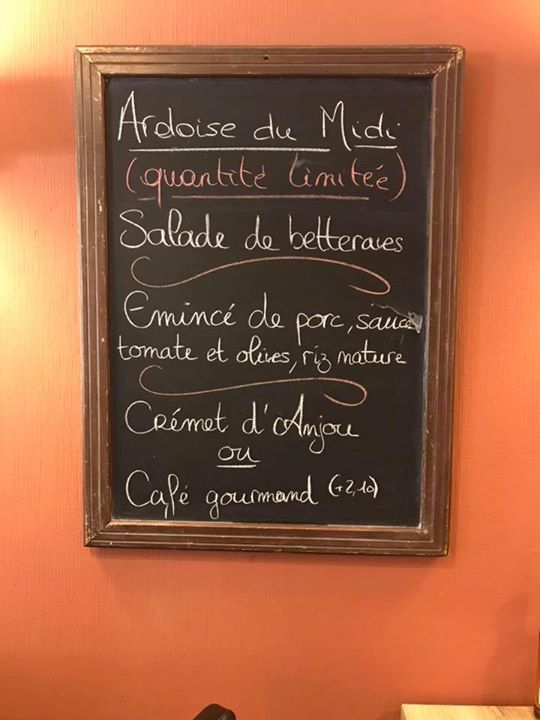 Ardoise du Midi
(quantité limitée)
Salade de betteraves
Emincé de porc, sauce
tomate et olives, riz nature
Crémet d'Anjou
ou
Café gourmand (+2,10)